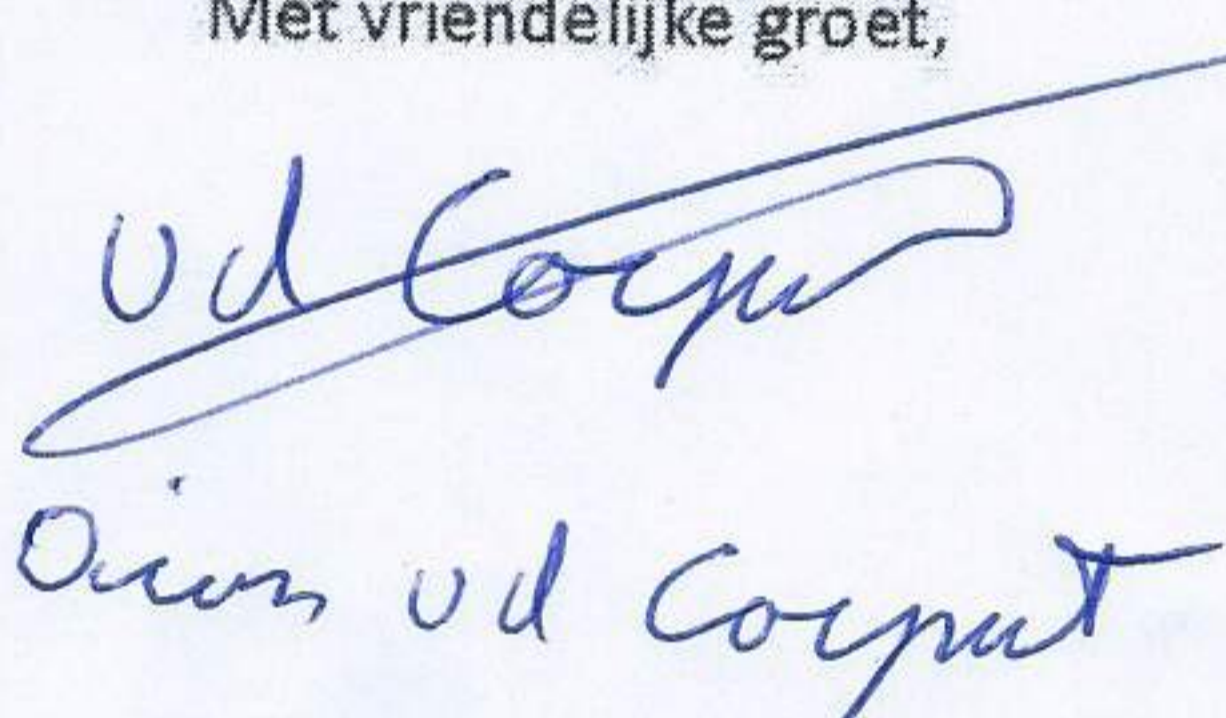 Met vriendelijke groet,
vd Corput
Dion vd Corput